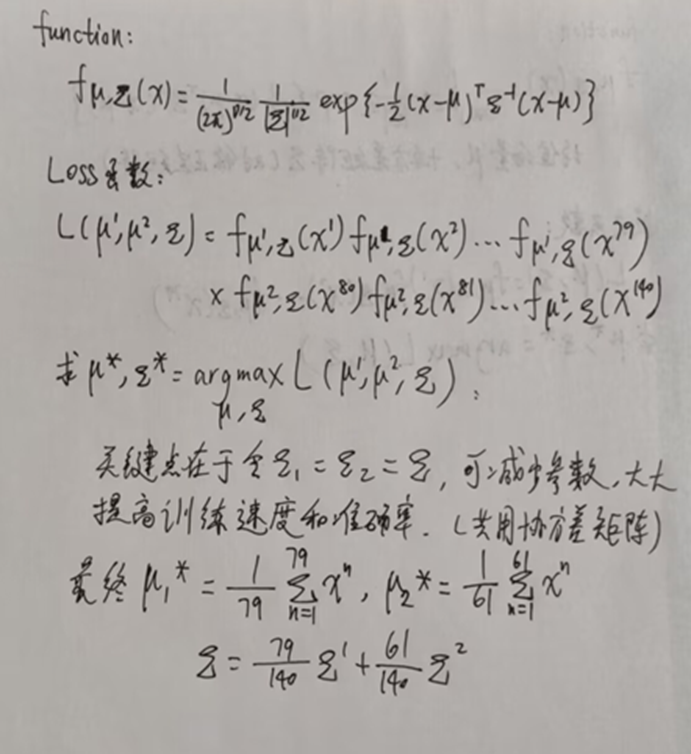 function:
fμ,Σ(x) = 1/(2π)^{D/2} 1/|Σ|^{1/2} exp{-1/2 (x-μ)^T Σ^{-1} (x-μ)}
Loss函数:
L(μ¹,μ²,Σ) = fμ¹,Σ(x¹) fμ¹,Σ(x²) ... fμ¹,Σ(x⁷⁹)
× fμ²,Σ(x⁸⁰) fμ²,Σ(x⁸¹) ... fμ²,Σ(x¹⁴⁰)
求 μ*,Σ* = argmax L(μ¹,μ²,Σ).
μ,Σ
关键点在于令Σ₁=Σ₂=Σ, 可减少参数,大大
提高训练速度和准确率.(共用协方差矩阵)
最终 μ₁* = 1/79 Σ_{n=1}^{79} xⁿ, μ₂* = 1/61 Σ_{n=1}^{61} xⁿ
Σ = 79/140 Σ¹ + 61/140 Σ²